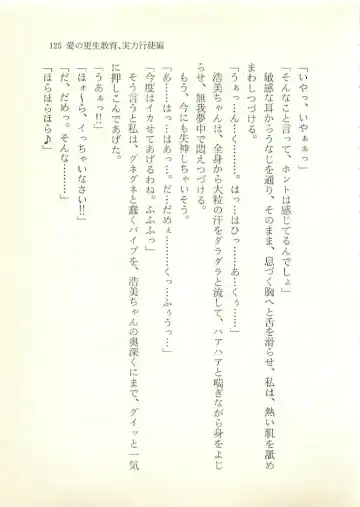 125 愛の更生教育、実力行使編
「いやっ、いやぁぁっ」
「そんなこと言って、ホントは感じてるんでしょ」
敏感な耳からうなじを通り、そのまま、息づく胸へと舌を滑らせ、私は、熱い肌を舐め
まわしつづける。
「うぁっ…んっ……く……。はっ…はひっ……あ…くぅ……」
浩美ちゃんは、全身から大粒の汗をダラダラと流して、ハアハアと喘ぎながら身をよじ
らせ、無我夢中で悶えつづける。
もう、今にも失神しちゃいそう。
「あ……はっ…はあっ…。だ…だめぇ………くっ…ふぅうっ…」
「今度はイカせてあげるわね。ふふふっ」
そう言うと私は、グネグネと蠢くバイブを、浩美ちゃんの奥深くにまで、グイッと一気
に押しこんであげた。
「うあぁっ!!」
「ほぉ～ら、イっちゃいなさい!!」
「だ、だめっ。そんな………」
「ほらほらほら♪」